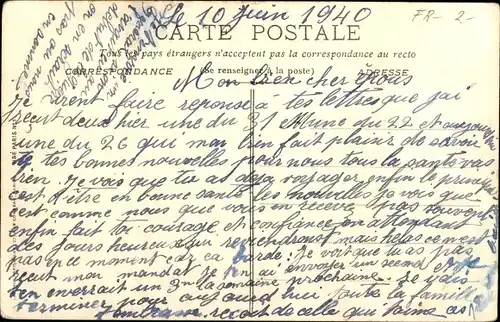 Le 10 Juin 1940
FR- 2-
CARTE POSTALE
Tous les pays étrangers n'acceptent pas la correspondance au recto
CORRESPONDANCE (Se renseigner à la poste) ADRESSE
Mon bien cher époux
Je vient faire reponse a tes lettres que j'ai
reçut deux hier une du 31 et une du 22 et aujourd'hui
une du 26 qui m'on bien fait plaisir de savoir
de tes bonnes nouvelles pour nous tous la santé vas
bien. Je vois que tu as deja voyager enfin le principal
c'est d'être en bonne santé les nouvelles je vois que
c'est comme nous que vous en recevé pas souvent
enfin fait toi courage et confiance en attendant
des jours heureux qui reviendront mais helas ce n'est
pas en ce moment car ça barde: Je voit que tu as pas
reçut mon mandat je t'en ai envoyer un second et je
t'en enverrait un 3me la semaine prochaine. Je vais
terminer pour aujourd'hui toute la famille
t'embrasse reçoit de celle qui t'aime